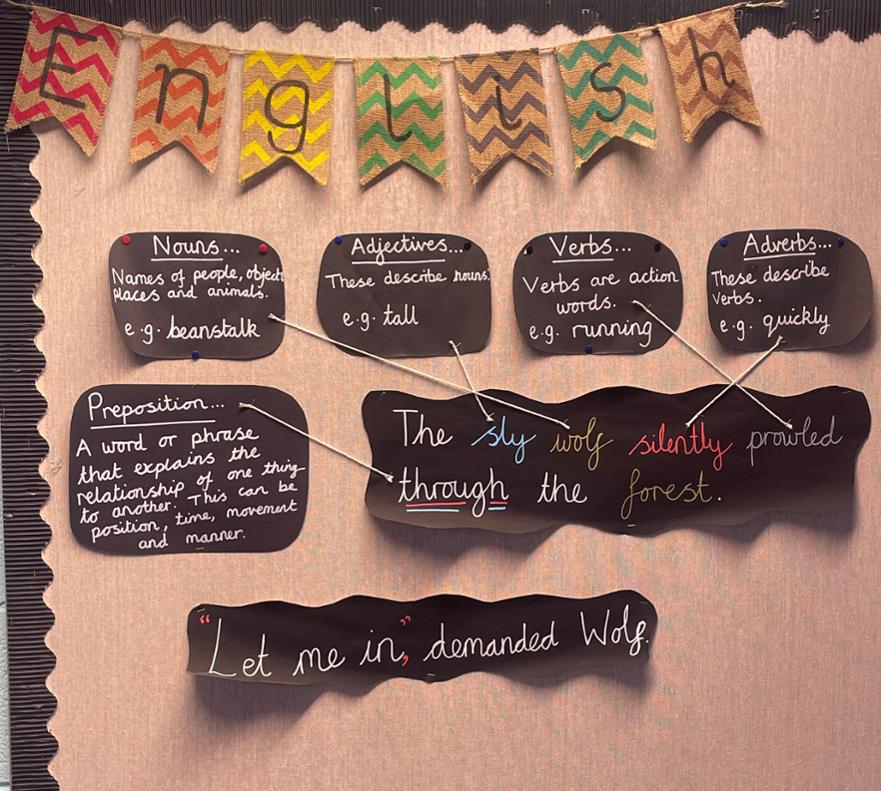 English
Nouns...
Names of people, object
places and animals.
e.g. beanstalk
Adjectives...
These describe nouns.
e.g. tall
Verbs...
Verbs are action
words.
e.g. running
Adverbs...
These describe
verbs.
e.g. quickly
Preposition...
A word or phrase
that explains the
relationship of one thing
to another. This can be
position, time, movement
and manner.
The sly wolf silently prowled
through the forest.
“Let me in,” demanded Wolf.